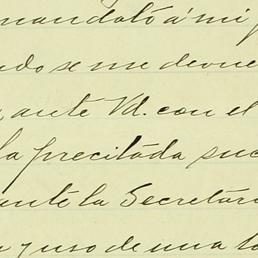 mandató á mi
se me devue
, ante Vd. con el
la precitada suc
ante la Secretar
y uso de una